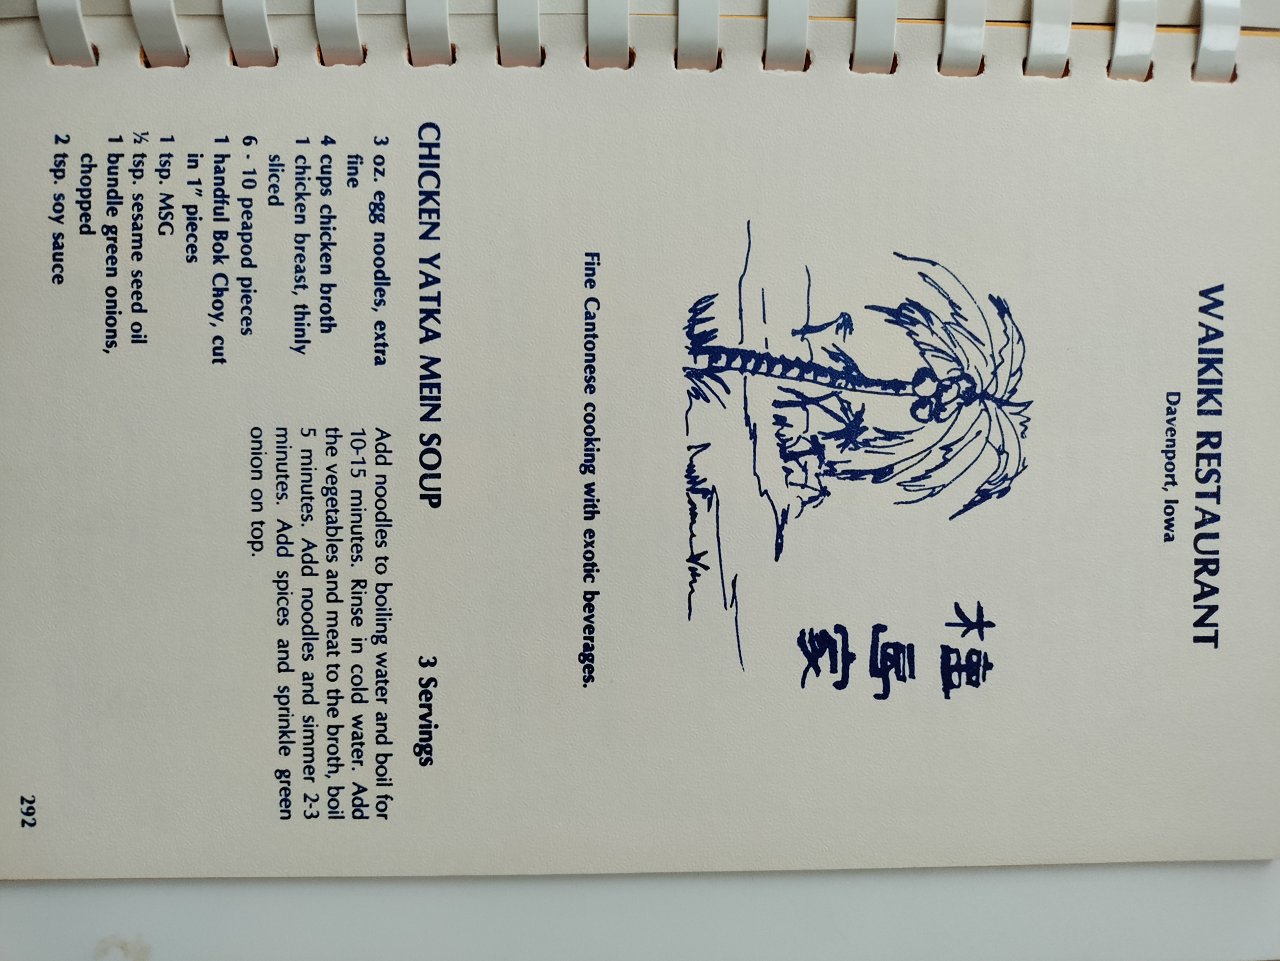 WAIKIKI RESTAURANT
Davenport, Iowa
檀
島
家
Fine Cantonese cooking with exotic beverages.
CHICKEN YATKA MEIN SOUP
3 Servings
3 oz. egg noodles, extra
fine
4 cups chicken broth
1 chicken breast, thinly
sliced
6 - 10 peapod pieces
1 handful Bok Choy, cut
in 1" pieces
1 tsp. MSG
½ tsp. sesame seed oil
1 bundle green onions,
chopped
2 tsp. soy sauce
Add noodles to boiling water and boil for
10-15 minutes. Rinse in cold water. Add
the vegetables and meat to the broth, boil
5 minutes. Add noodles and simmer 2-3
minutes. Add spices and sprinkle green
onion on top.
292